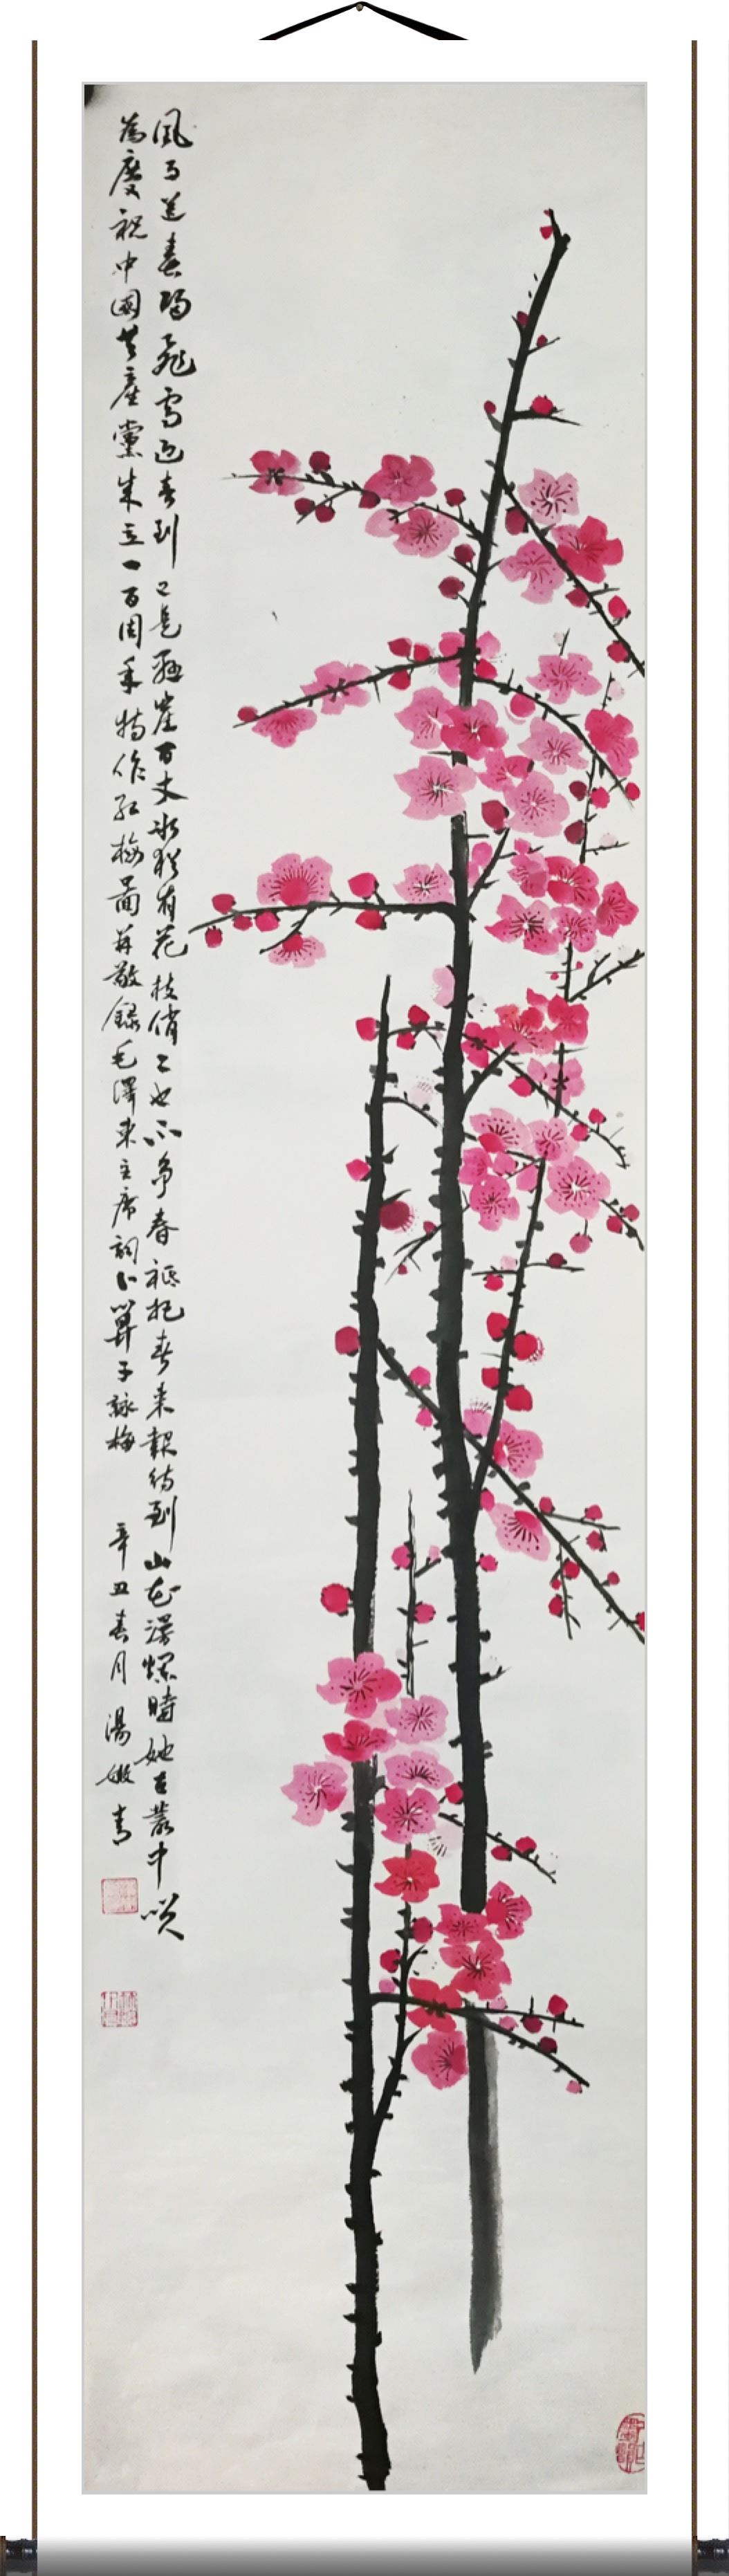 風雨送春歸飛雪迎春到已是懸崖百丈冰猶有花枝俏俏也不爭春祗把春來報待到山花漫爛時她在叢中笑
為慶祝中國共產黨成立一百周年特作紅梅圖并敬錄毛澤東主席詞卜算子詠梅 辛丑春月 湯嫩青